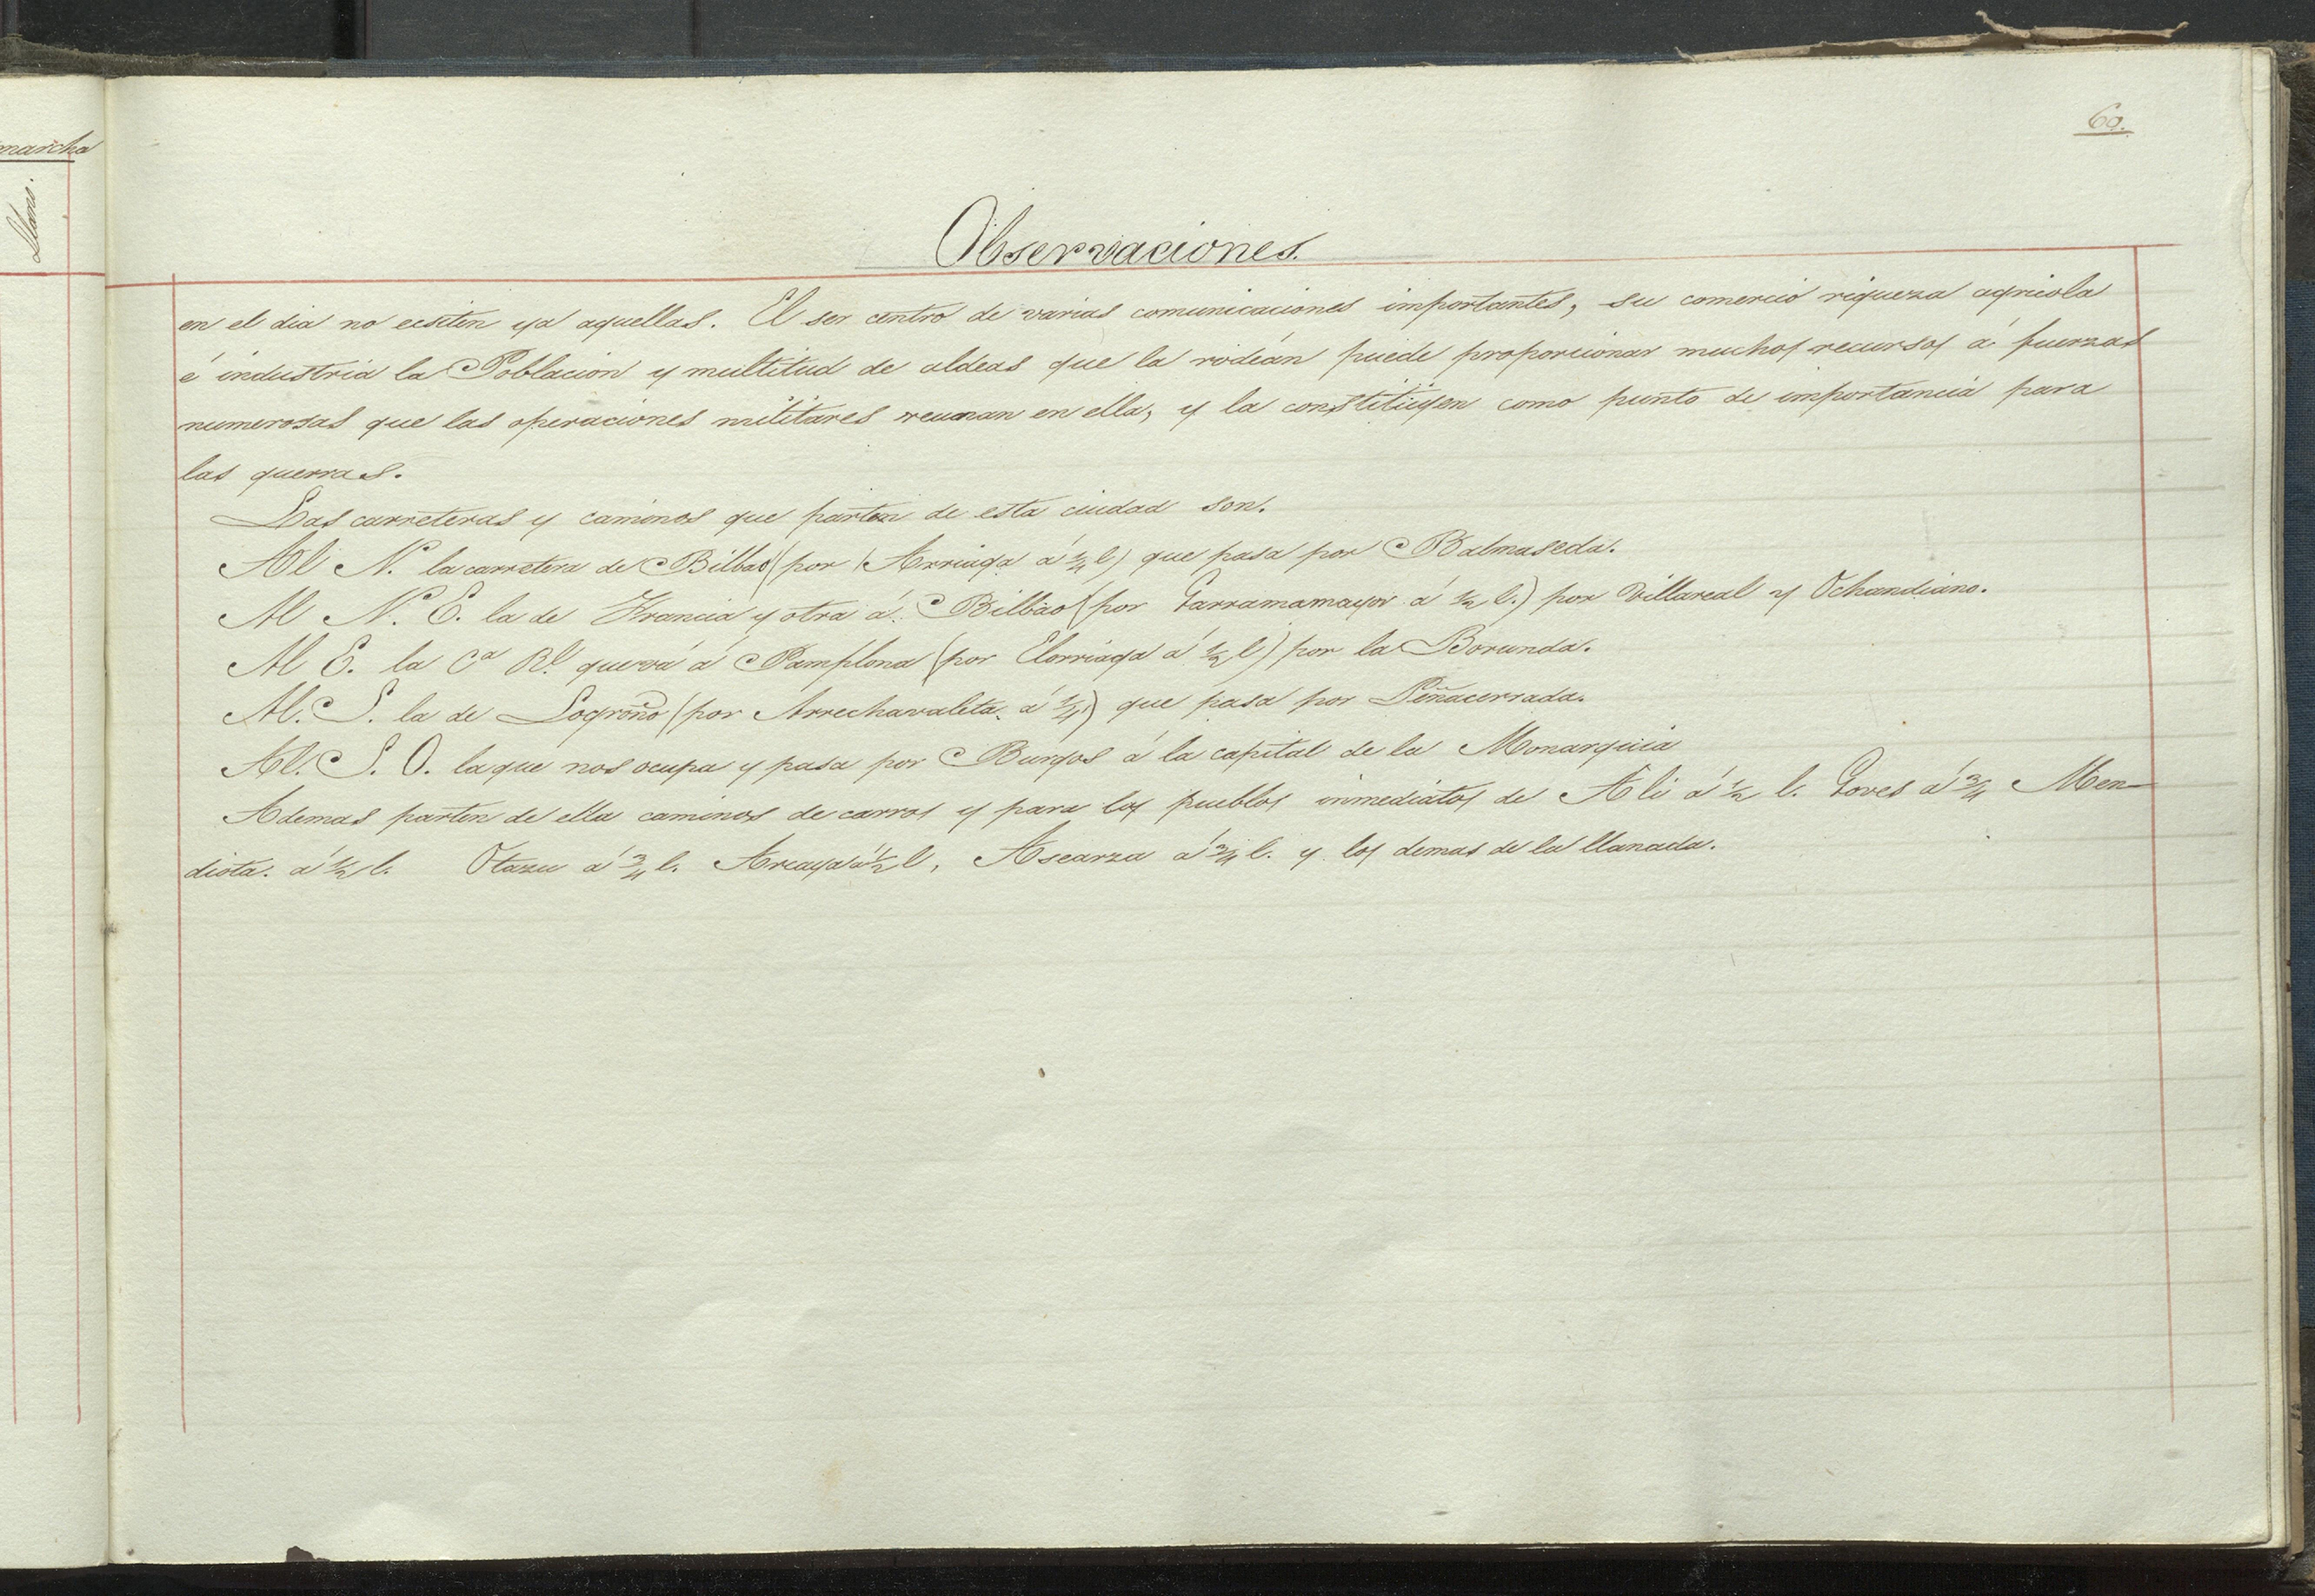 marcha
Llano.
60.
Observaciones.
en el dia no ecsiten ya aquellas. El ser centro de varias comunicaciones importantes, su comercio riqueza agricola
é industria la Poblacion y multitud de aldeas que la rodean puede proporcionar muchos recursos á fuerzas
numerosas que las operaciones militares reunan en ella, y la constitüyen como punto de importancia para
las guerras.
Las carreteras y caminos que parten de esta ciudad son.
Al N. la carretera de Bilbao (por Arriaga á ¼ l) que pasa por Balmaseda.
Al N. E. la de Francia y otra á Bilbao (por Garramamayor á ½ l.) por Villareal y Ochandiano.
Al E. la Cª Rl. que vá á Pamplona (por Elorriaga á ½ l) por la Borunda.
Al. S. la de Logroño (por Arrechavaleta á ¼) que pasa por Peñacerrada.
Al. S. O. la que nos ocupa y pasa por Burgos á la capital de la Monarquia
Ademas parten de ella caminos de carros y para los pueblos inmediatos de Ali á ½ l. Goves á ¾ Men-
diota. á ½ l. Otazu á ¾ l. Arcaya á ½ l, Ascarza á ¾ l. y los demas de la llanada.